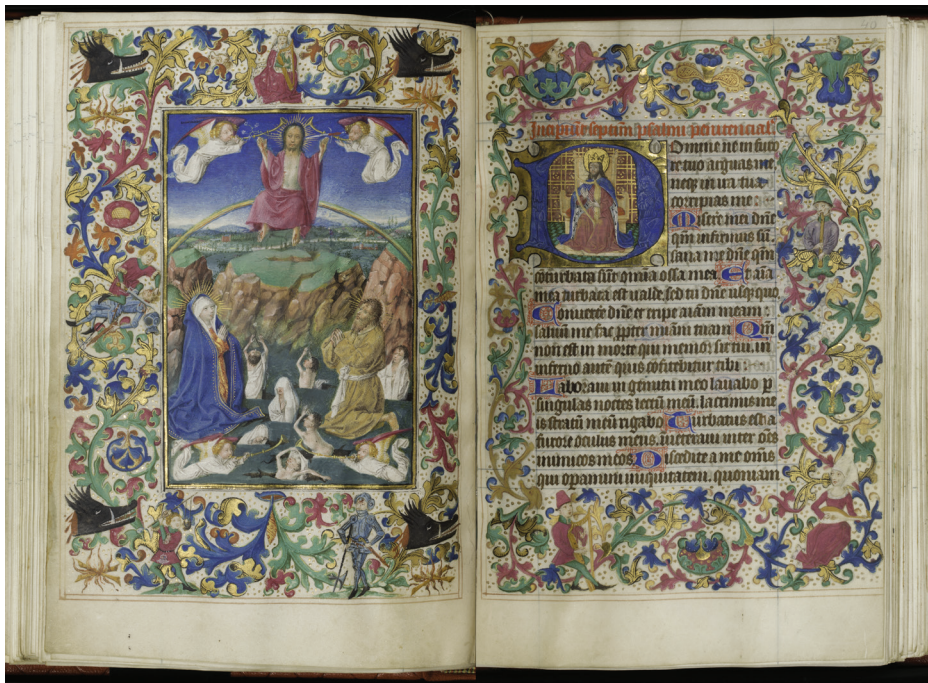 Incipiūt septem psalmi penitencial
Domine ne in furo
re tuo arguas me
neqȝ in ira tua
corripias me :
Misere mei dn̄e
qm̄ infirmus sū
sana me dn̄e qm̄
cōturbata sūt om̄ia ossa mea · Et aīa
mea turbata est valde · sed tu dn̄e usq quo
Cōvertē dn̄e et eripe aīam meam :
salvum me fac ꝓpter mīam tuam · Qm̄
nō est in morte qui memor sit tui · in
inferno autē quis cōfitebitur tibi :
Laboravi in gemitu meo lavabo ꝑ
singulas noctes lectū meū · lacrimis me
is stratū meū rigabo · Turbatus est a
furore oculus meus · inveteravi inter oēs
inimicos meos · Discedite a me om̄s
qui opamini iniquitatem · quoniam